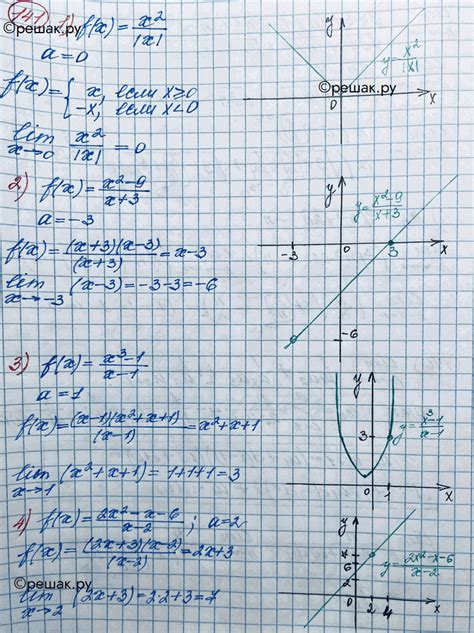 141
1) f(x) = x²/|x|
a = 0
©решак.ру
f(x) = { x, если x ≥ 0
-x, если x < 0
lim x→0 x²/|x| = 0
y
y = x²/|x|
©решак.ру
0
x
2) f(x) = (x²-9)/(x+3)
a = -3
f(x) = (x+3)(x-3)/(x+3) = x-3
lim x→-3 (x-3) = -3-3 = -6
y
y = (x²-9)/(x+3)
-3
0
3
x
-6
3) f(x) = (x³-1)/(x-1)
a = 1
f(x) = (x-1)(x²+x+1)/(x-1) = x²+x+1
lim x→1 (x²+x+1) = 1+1+1 = 3
y
3
y = (x³-1)/(x-1)
0
1
x
4) f(x) = (2x²-x-6)/(x-2); a = 2
f(x) = (2x+3)(x-2)/(x-2) = 2x+3
©решак.ру
lim x→2 (2x+3) = 2·2+3 = 7
y
7
6
2
y = (2x²-x-6)/(x-2)
0
2
4
x